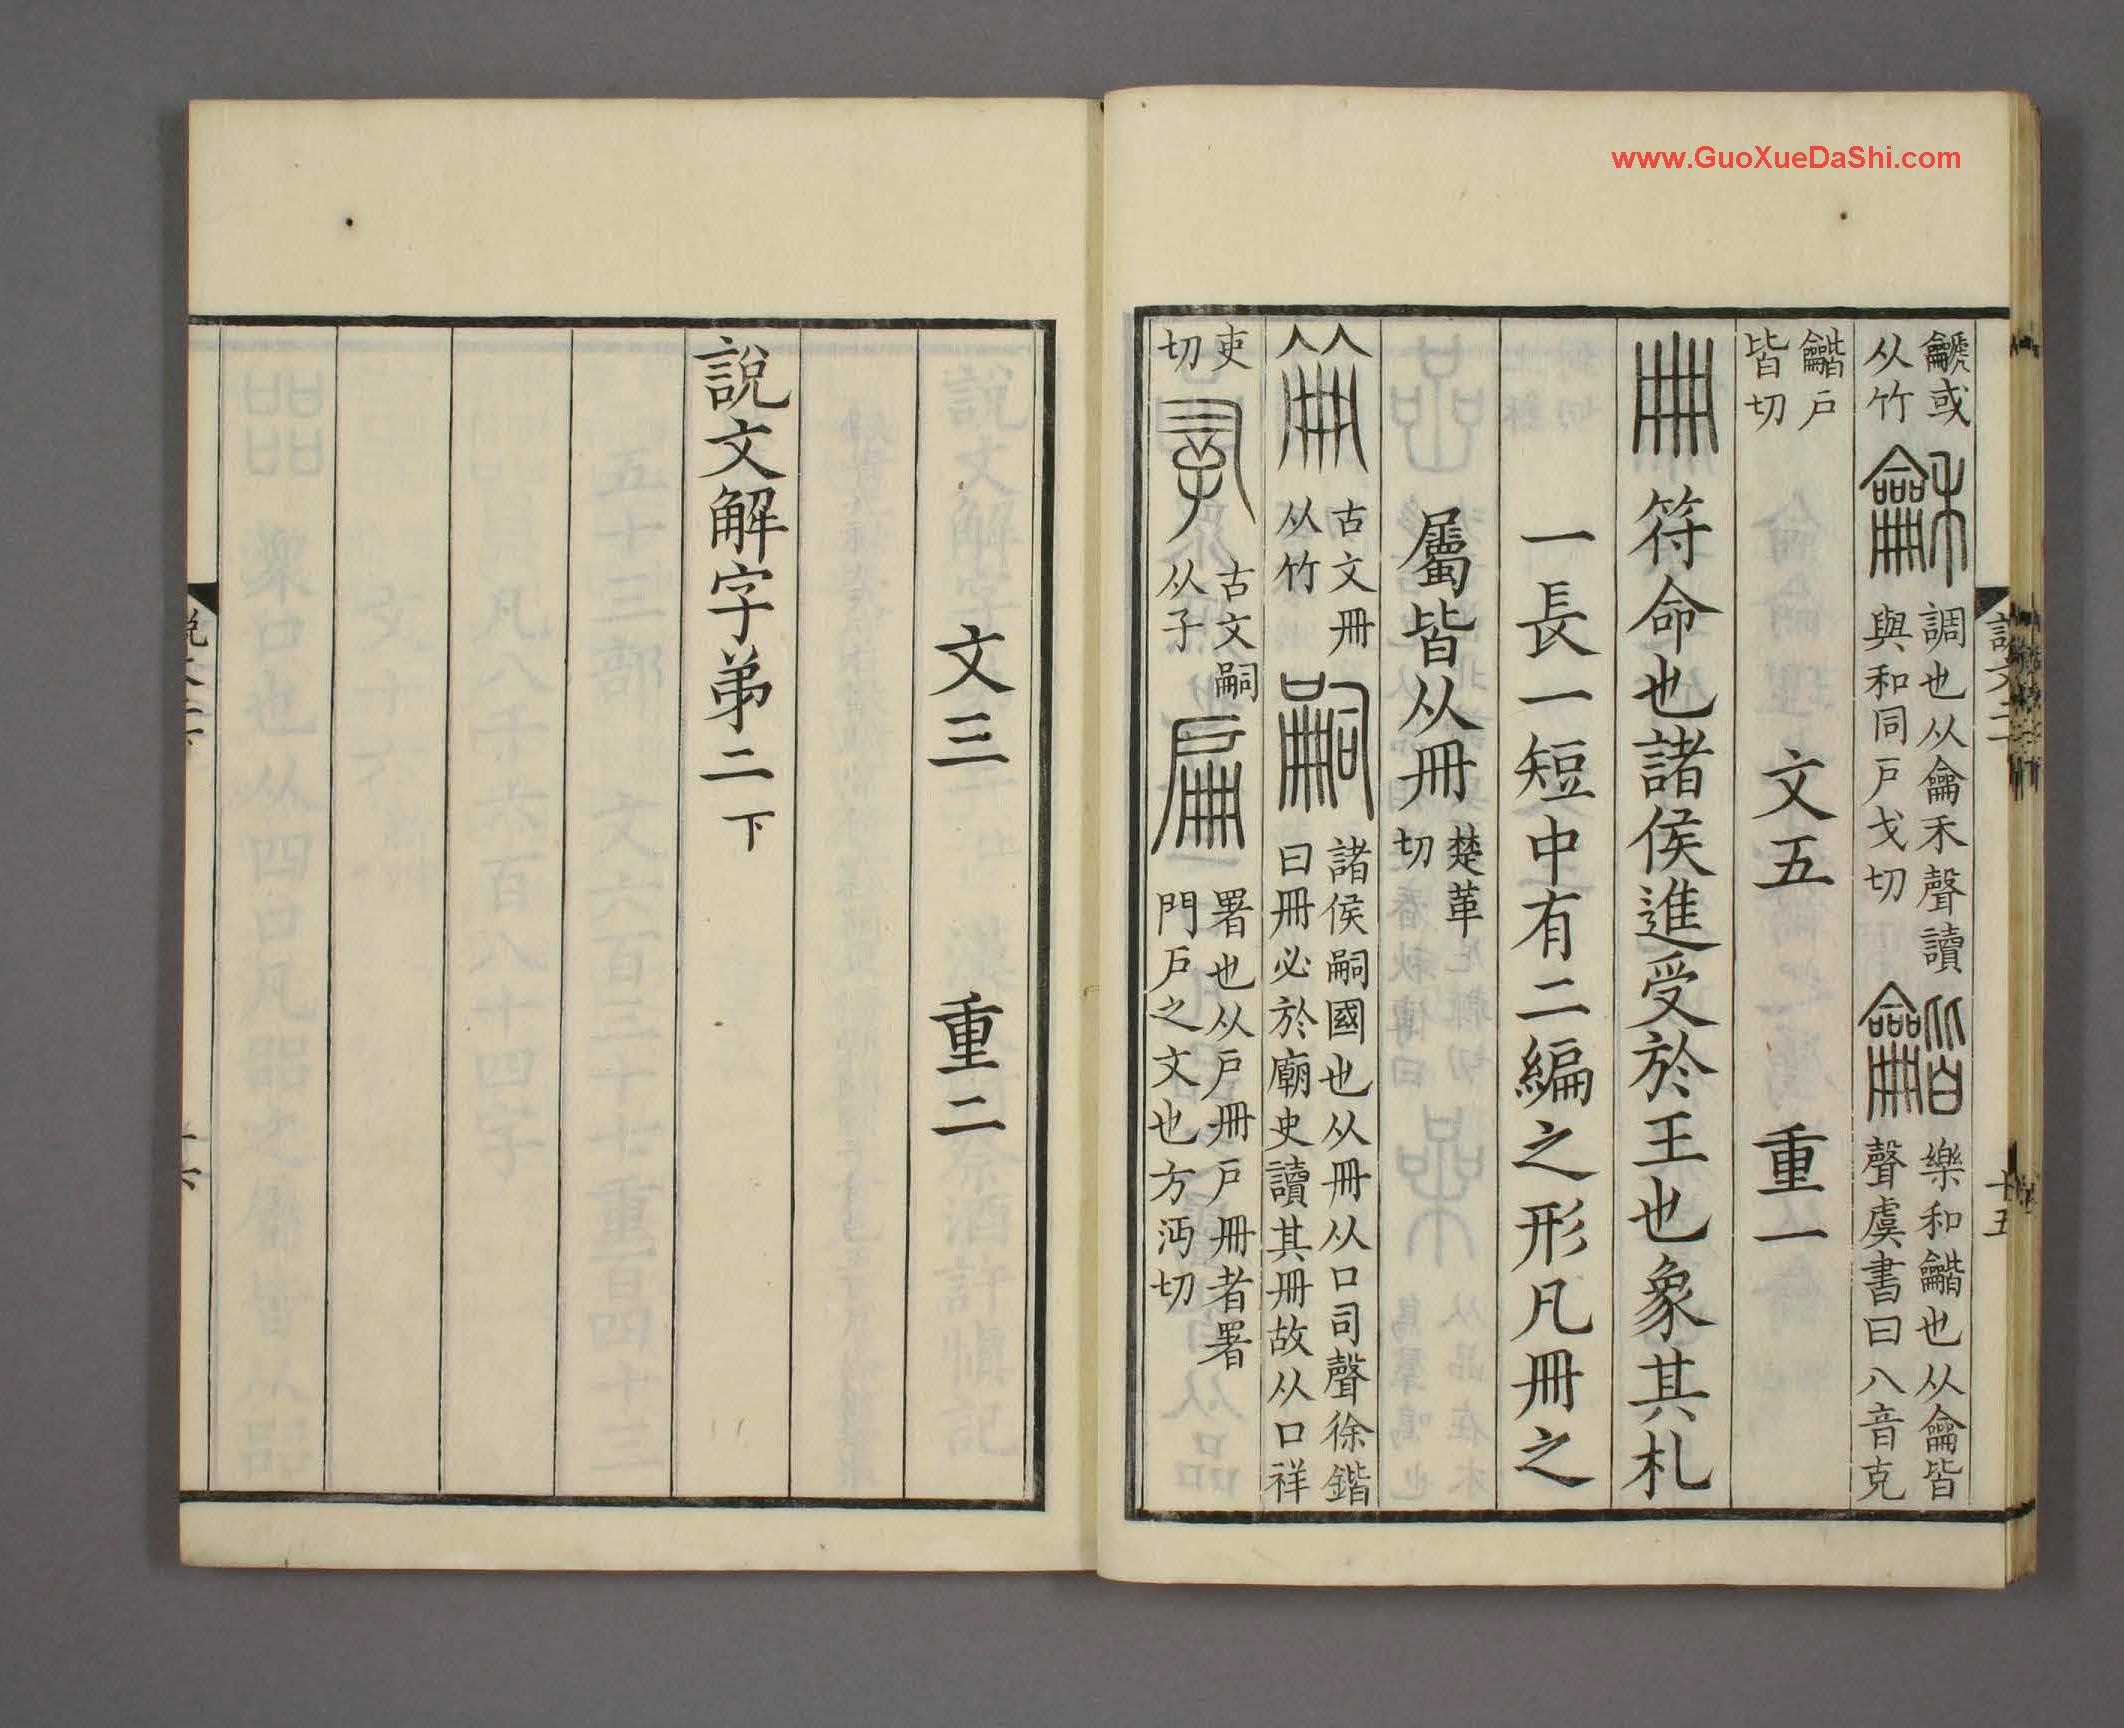 www.GuoXueDaShi.com
說文二下
十五
龢或
从竹
龢
調也从龠禾聲讀
與和同戶戈切
龤
樂和龤也从龠皆
聲虞書曰八音克
龤戶
皆切
文五 重一
冊 符命也諸侯進受於王也象其札
一長一短中有二編之形凡冊之
屬皆从冊
楚革
切
𠕋
古文冊
从竹
嗣
諸侯嗣國也从冊从口司聲徐鍇
曰冊必於廟史讀其冊故从口祥
吏
切
𤔲
古文嗣
从子
扁
署也从戶冊戶冊者署
門戶之文也方沔切
文三 重二
說文解字弟二下
說文二下
十六